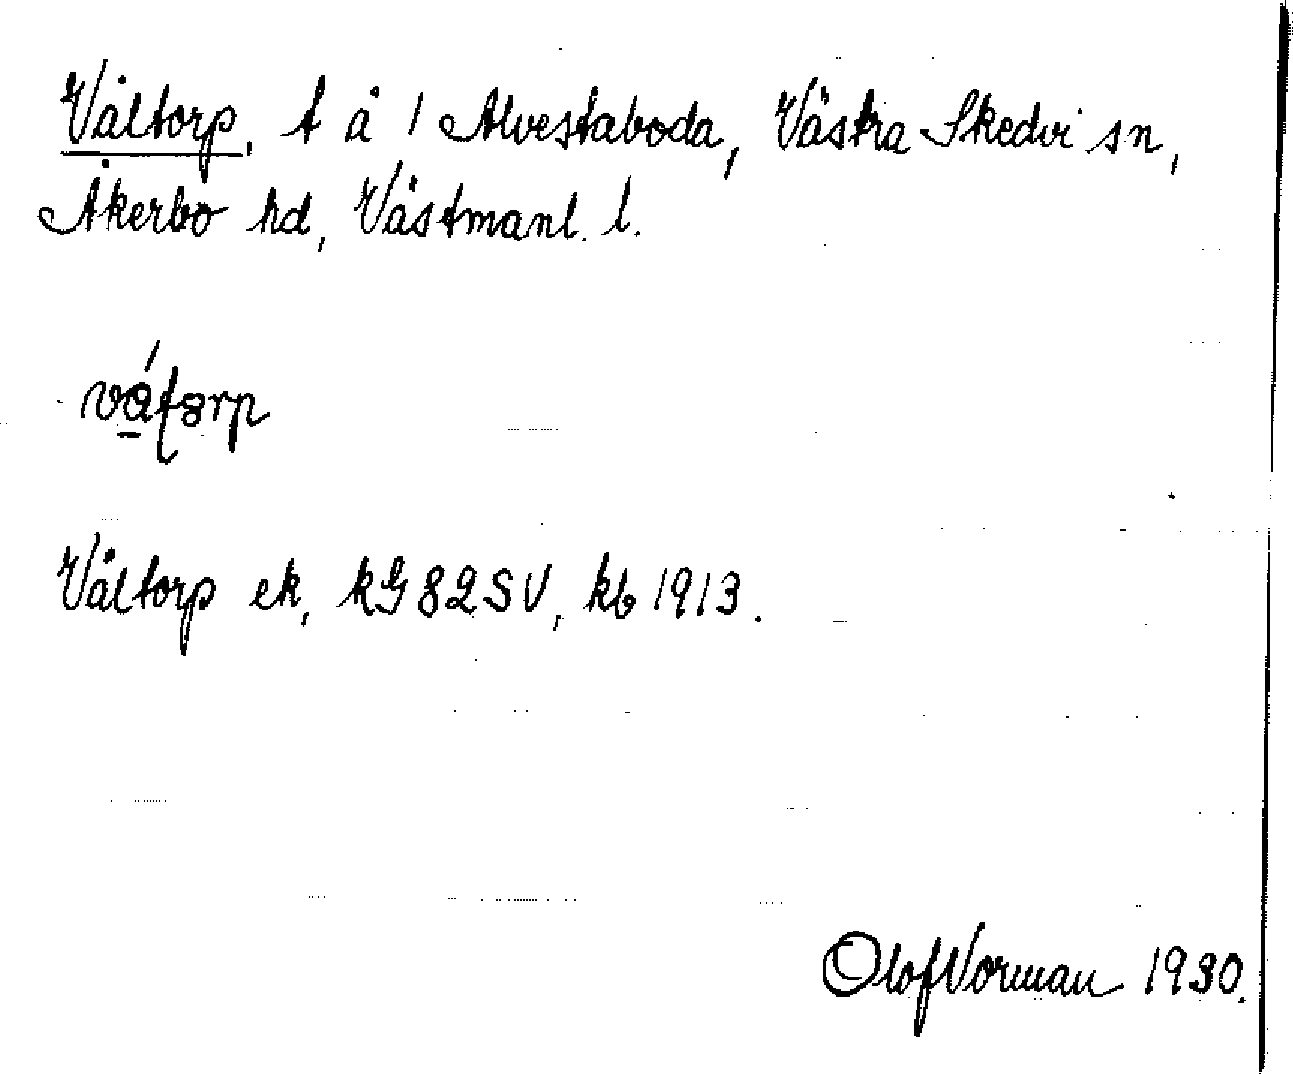 Våltorp, t å 1 Alvestaboda, Västra Skedvi sn,
Åkerbo hd, Västmanl. l.
Våltorp ek, kG 82 SV, kb 1913.
Olof Vorman 1930.